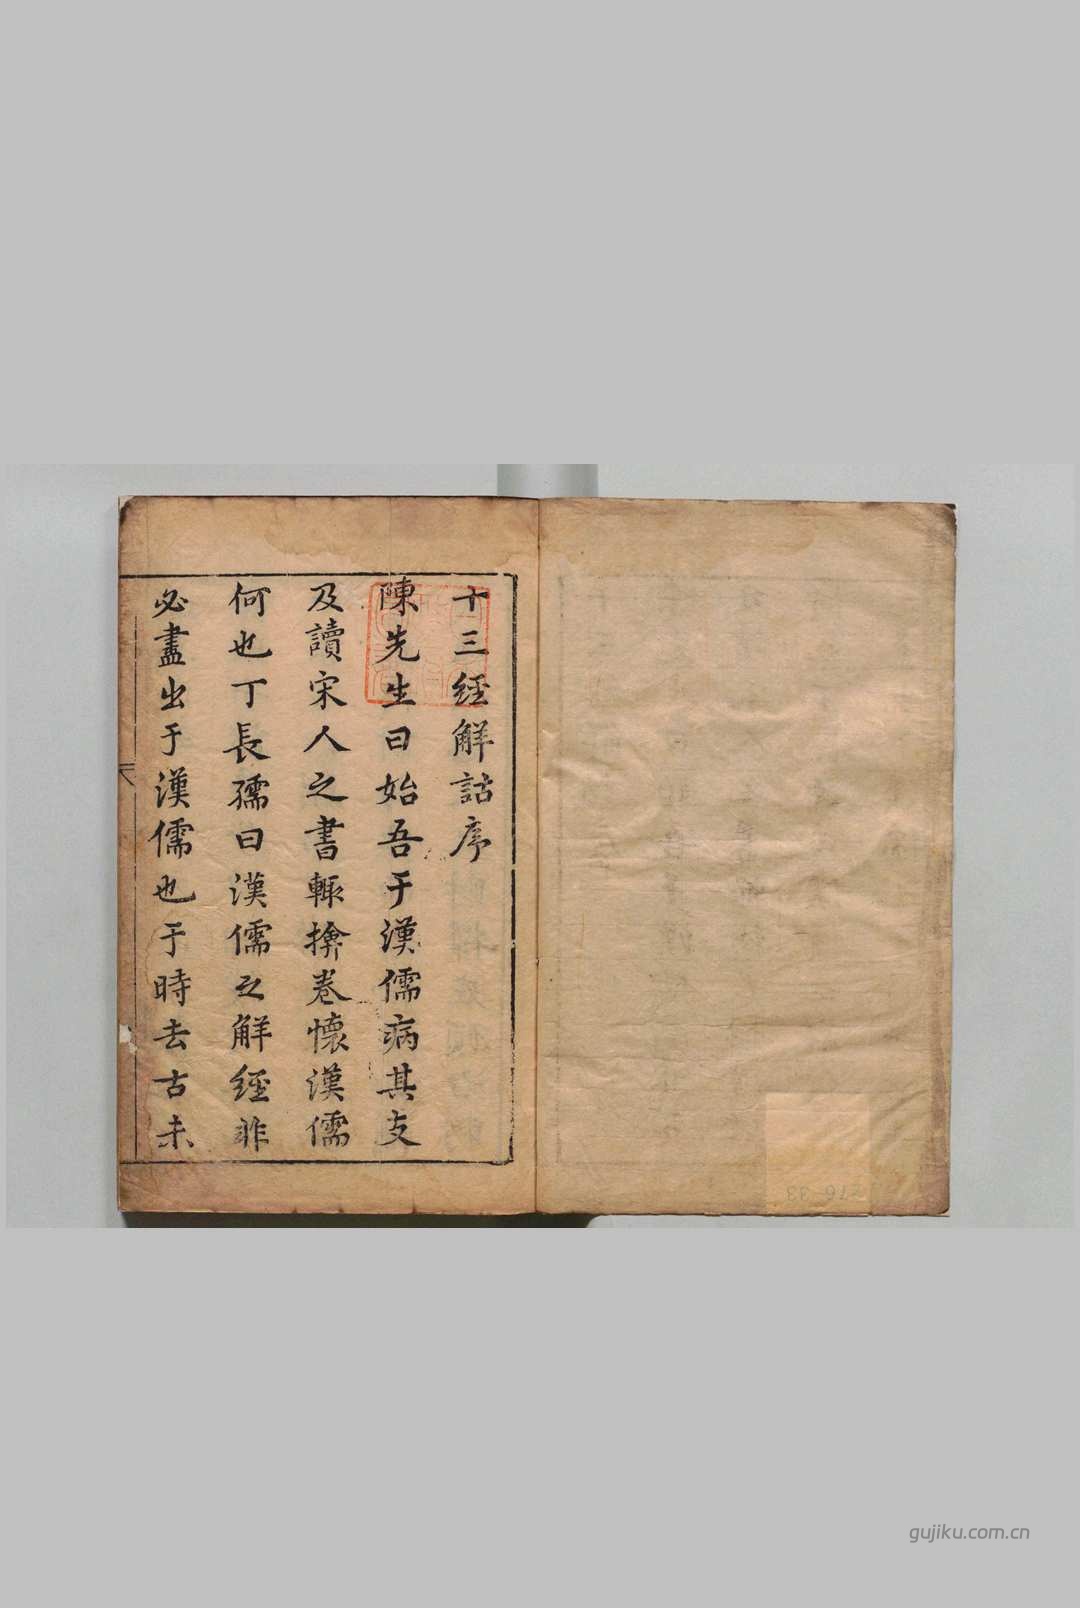 十三經解詁序
陳先生曰始吾于漢儒病其支
及讀宋人之書輒掩卷懷漢儒
何也丁長孺曰漢儒之解經非
必盡出于漢儒也于時去古未
276 33
gujiku.com.cn